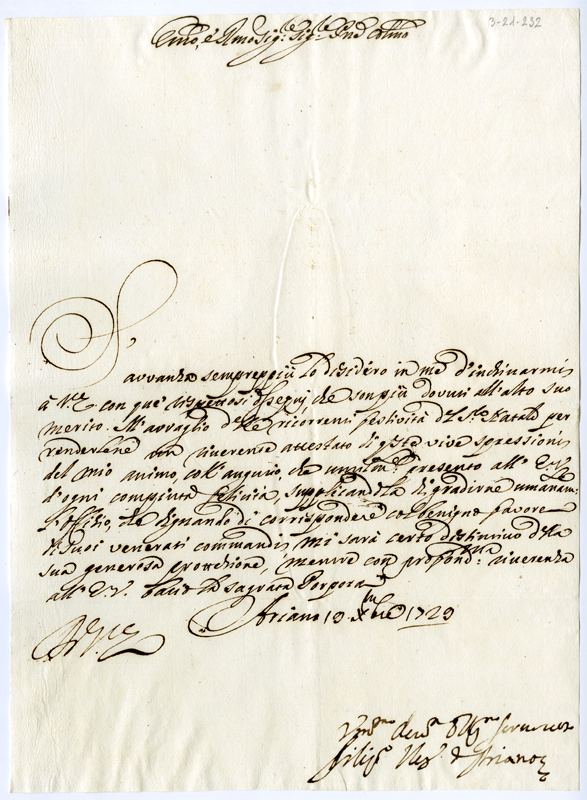 3-21-232
Em̃o, e Rmo Sig.re Sig.re Pne Colmo
S'avvanza sempreppiù lo disidero in me d'inchinarmi
à V.E. con que' rispettosi ossequj che son più dovuti all'alto suo
merito. M'avvaglio delle ricorrenti festività del S.to Natale per
renderlene un riverente attestato di queste vive espressioni
del mio animo, coll'augurio, che umilm.te presento all'E.V.
d'ogni compiuta felicità, supplicandola di gradirne umanam.te
l'offizio, che dignando di corrispondere col benigno favore
de suoi venerati commandi, mi sarà certo distintivo della
sua generosa protezione, mentre con profond.ma riverenza
all'E.V. bacio la sagrata Porpora
Ariano 10 Xbre 1729
Di V.E.
Um̃o devmo obblmo servitore
Filipo Vesc.o d'Ariano